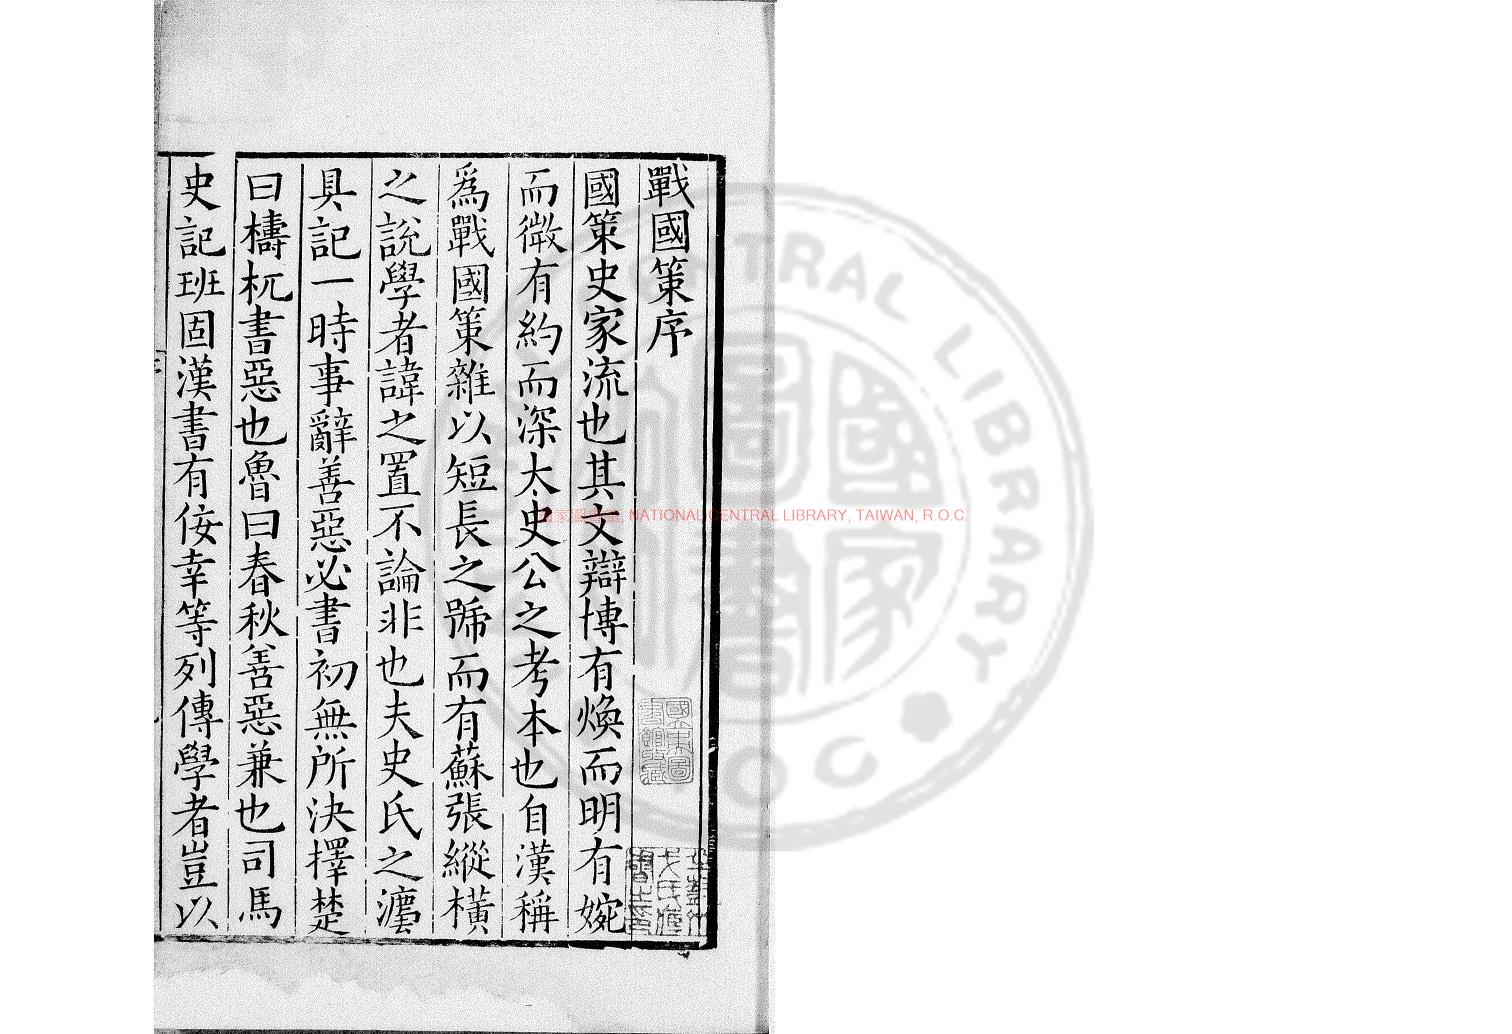 戰國策序
國策史家流也其文辯博有煥而明有婉
而微有約而深太史公之考本也自漢稱
爲戰國策雜以短長之號而有蘇張縱橫
之說學者諱之置不論非也夫史氏之灋
具記一時事辭善惡必書初無所決擇楚
曰檮杌書惡也魯曰春秋善惡兼也司馬
史記班固漢書有佞幸等列傳學者豈以
國家圖書館, NATIONAL CENTRAL LIBRARY, TAIWAN, R.O.C.
CENTRAL LIBRARY
國家圖書
R.O.C